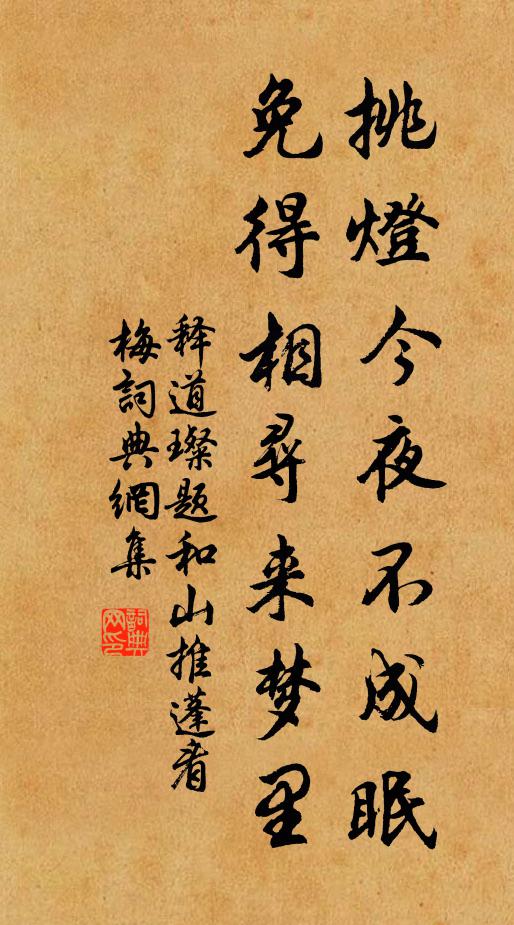 挑燈今夜不成眠
免得相尋来梦里
释道璨题和山推蓬看
梅詞典網集
詞典
网印